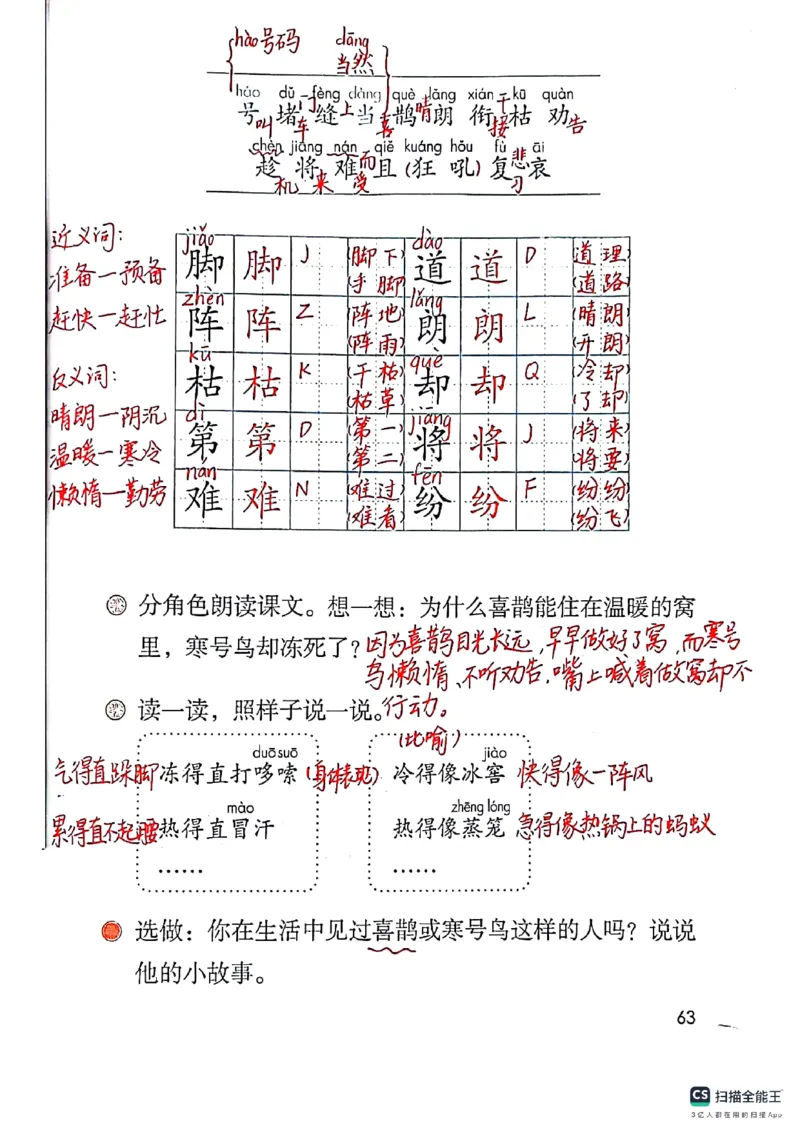 hào号码 dāng当然
háo dǔ fèng dàng què lǎng xián kū quàn
号叫 堵车 缝 上当 喜鹊 晴朗 衔接 干枯 劝告
chèn jiāng nán qiě kuáng hǒu fù āi
趁机 将来 难受 而且 (狂吼) 复习 悲哀
近义词:
准备—预备
赶快—赶忙
反义词:
晴朗—阴沉
温暖—寒冷
懒惰—勤劳
jiǎo dào
脚 脚 J (脚下) (手脚) 道 道 D (道理) (道路)
zhèn lǎng
阵 阵 Z (阵地) (阵雨) 朗 朗 L (晴朗) (开朗)
kū què
枯 枯 K (干枯) (枯草) 却 却 Q (冷却) (了却)
dì jiāng
第 第 D (第一) (第二) 将 将 J (将来) (将要)
nán fēn
难 难 N (难过) (难者) 纷 纷 F (纷纷) (纷飞)
分角色朗读课文。想一想：为什么喜鹊能住在温暖的窝
里，寒号鸟却冻死了？因为喜鹊目光长远,早早做好了窝,而寒号
鸟懒惰、不听劝告,嘴上喊着做窝却不
读一读，照样子说一说。行动。
(比喻)
duō suō jiào
气得直跺脚 冻得直打哆嗦 (身体表现) 冷得像冰窖 快得像一阵风
mào zhēng lóng
累得直不起腰 热得直冒汗 热得像蒸笼 急得像热锅上的蚂蚁
…… ……
选做：你在生活中见过喜鹊或寒号鸟这样的人吗？说说
他的小故事。
63
CS 扫描全能王
3亿人都在用的扫描App